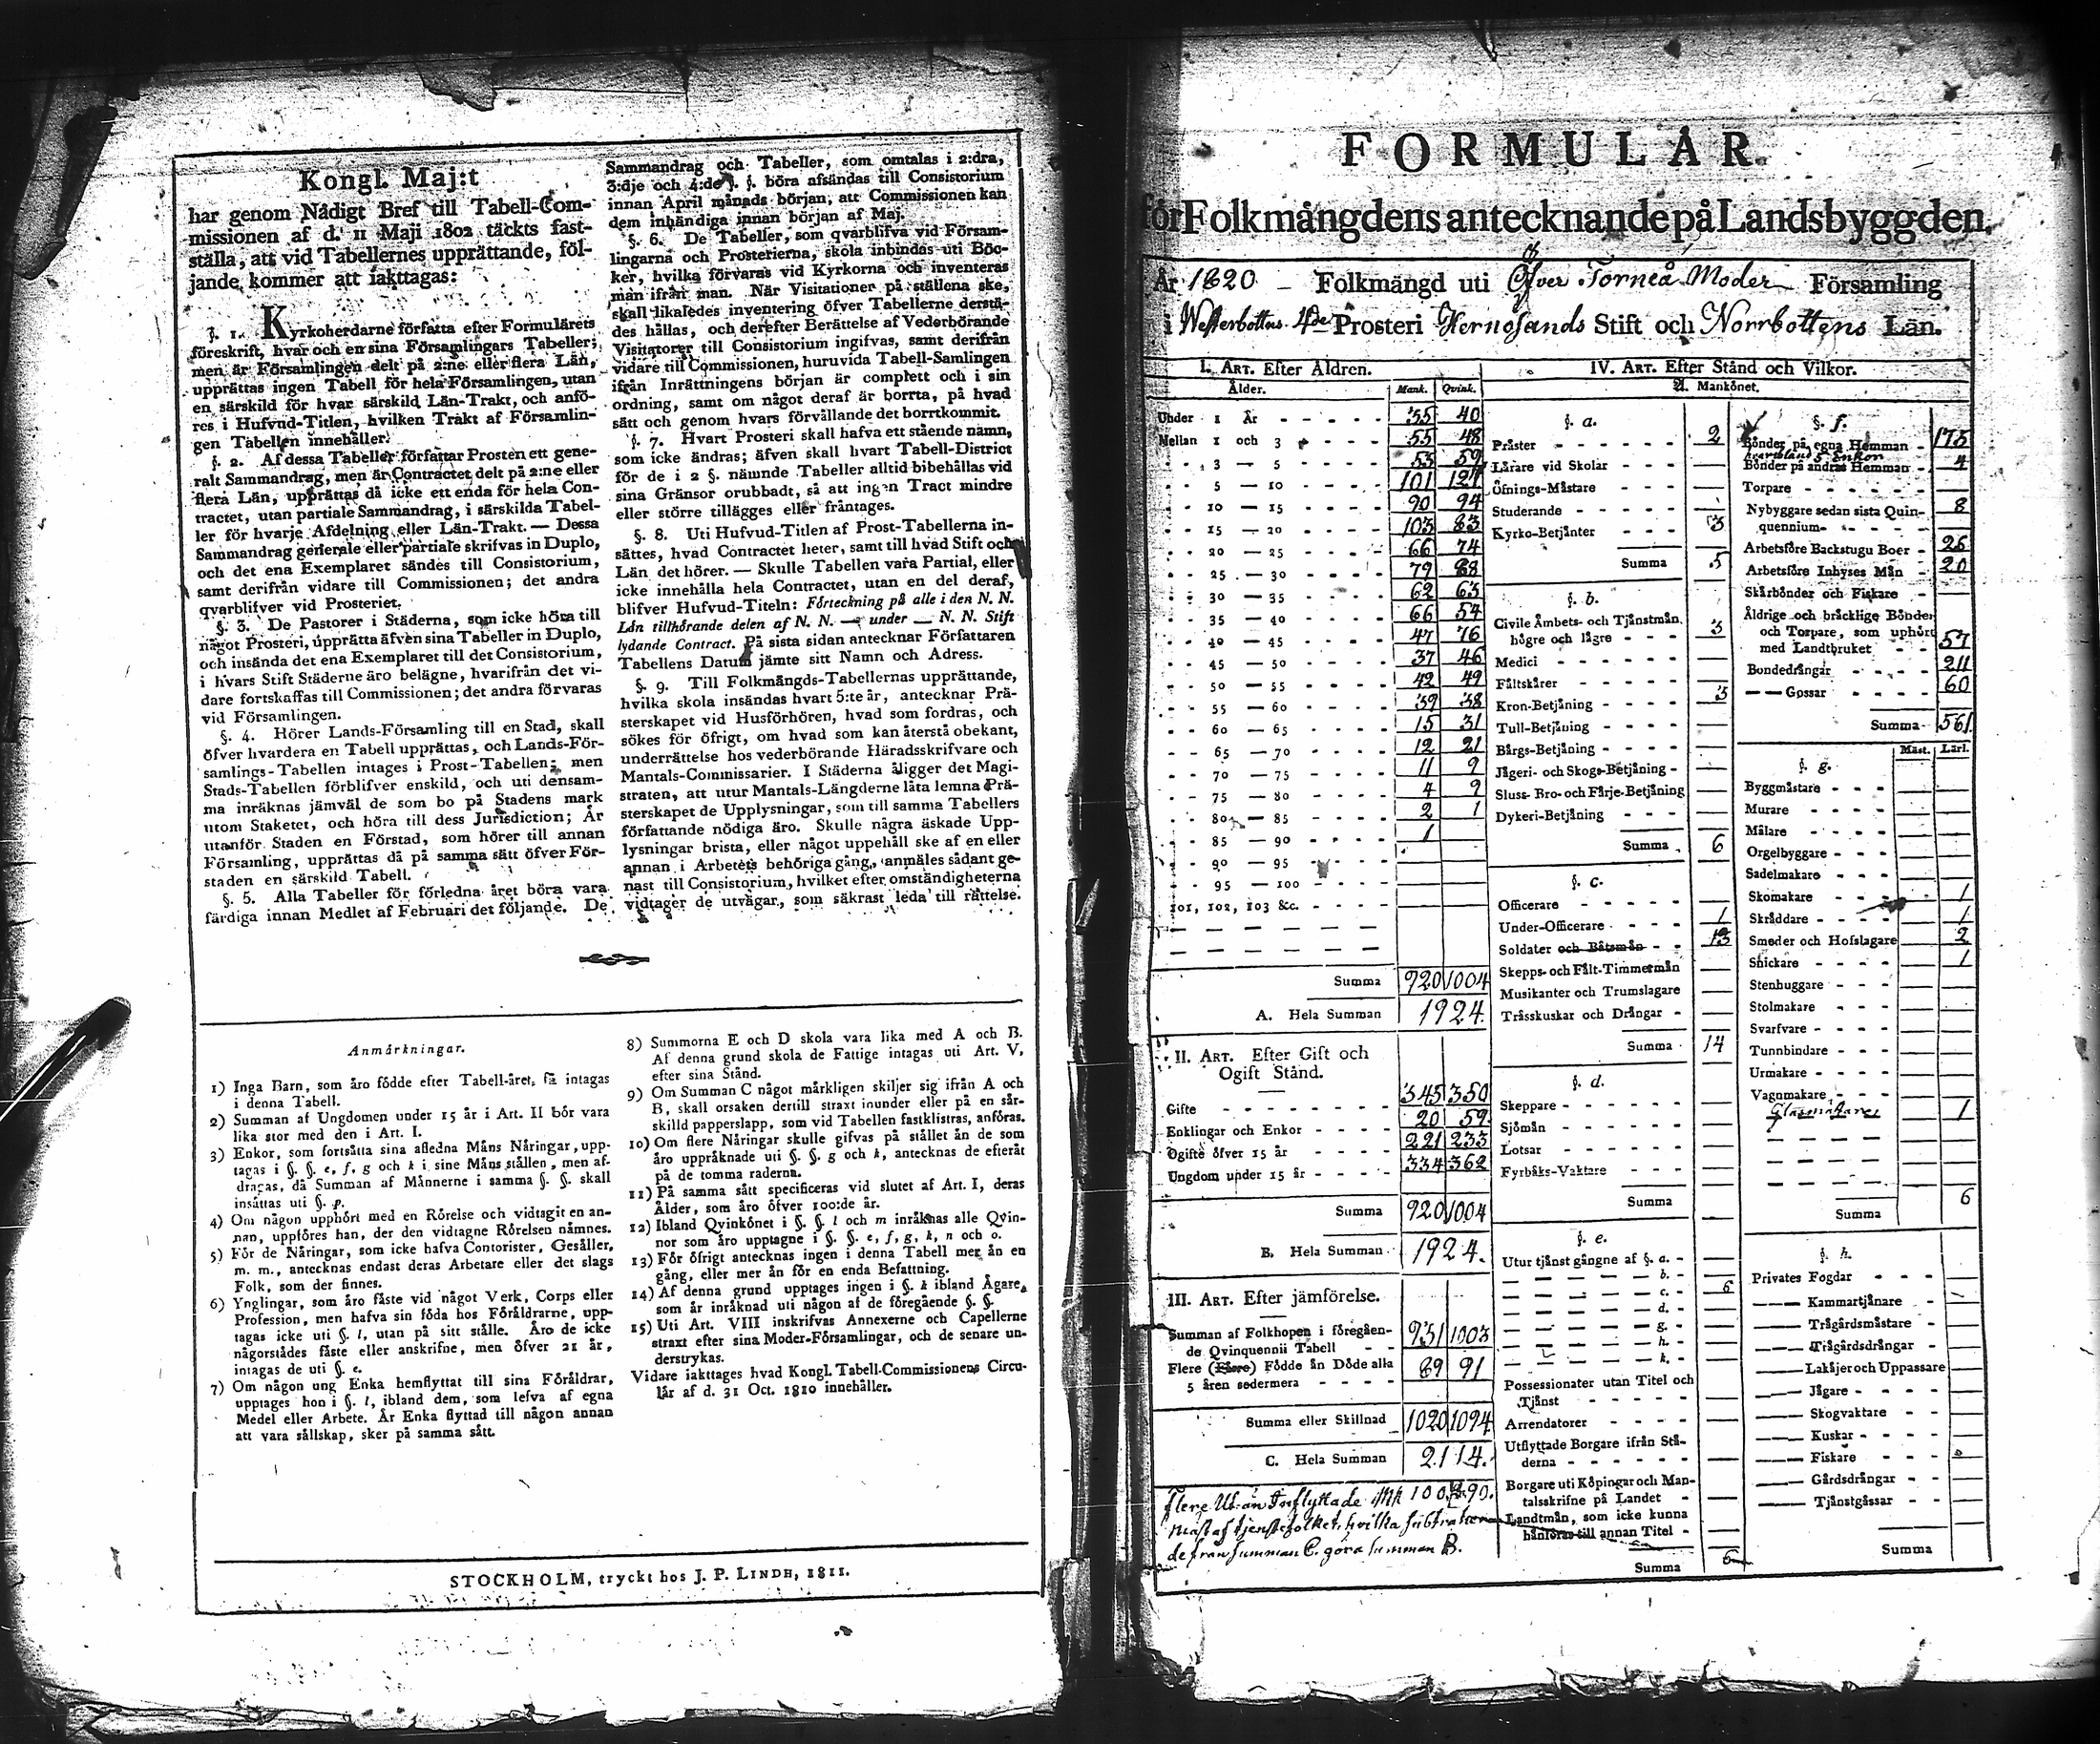 Kongl. Maj:t
har genom Nådigt Bref till Tabell-Com-
missionen af d. 11 Maji 1802 täckts fast-
ställa, att vid Tabellernes upprättande, föl-
jande kommer att iakttagas:
§. 1. Kyrkoherdarne författa efter Formulärets
föreskrift, hvar och en sina Församlingars Tabeller;
men är Församlingen delt på 2:ne eller flera Län,
upprättas ingen Tabell för hela Församlingen, utan
en särskild för hvar särskild Län-Trakt, och anfö-
res i Hufvud-Titlen, hvilken Trakt af Församlin-
gen Tabellen innehåller.
§. 2. Af dessa Tabeller författar Prosten ett gene-
ralt Sammandrag, men är Contractet delt på 2:ne eller
flera Län, upprättas då icke ett enda för hela Con-
tractet, utan partiale Sammandrag, i särskilda Tabel-
ler för hvarje Afdelning eller Län-Trakt. — Dessa
Sammandrag generale eller partiale skrifvas in Duplo,
och det ena Exemplaret sändes till Consistorium,
samt derifrån vidare till Commissionen; det andra
qvarblifver vid Prosteriet.
§. 3. De Pastorer i Städerna, som icke höra till
något Prosteri, upprätta äfven sina Tabeller in Duplo,
och insända det ena Exemplaret till det Consistorium,
i hvars Stift Städerne äro belägne, hvarifrån det vi-
dare fortskaffas till Commissionen; det andra förvaras
vid Församlingen.
§. 4. Hörer Lands-Församling till en Stad, skall
öfver hvardera en Tabell upprättas, och Lands-För-
samlings-Tabellen intages i Prost-Tabellen; men
Stads-Tabellen förblifver enskild, och uti densam-
ma inräknas jämväl de som bo på Stadens mark
utom Staketet, och höra till dess Jurisdiction; Är
utanför Staden en Förstad, som hörer till annan
Församling, upprättas då på samma sätt öfver För-
staden en särskild Tabell.
§. 5. Alla Tabeller för förledna året böra vara
färdiga innan Medlet af Februari det följande. De
Sammandrag och Tabeller, som omtalas i 2:dra,
3:dje och 4:de §. §. böra afsändas till Consistorium
innan April månads början, att Commissionen kan
dem inhändiga innan början af Maj.
§. 6. De Tabeller, som qvarblifva vid Försam-
lingarna och Prosterierna, skola inbindas uti Böc-
ker, hvilka förvaras vid Kyrkorna och inventeras
man ifrån man. När Visitationer på ställena ske,
skall likaledes inventering öfver Tabellerne derstä-
des hållas, och derefter Berättelse af Vederbörande
Visitatorer till Consistorium ingifvas, samt derifrån
vidare till Commissionen, huruvida Tabell-Samlingen
ifrån Inrättningens början är complett och i sin
ordning, samt om något deraf är borrta, på hvad
sätt och genom hvars förvållande det borrtkommit.
§. 7. Hvart Prosteri skall hafva ett stående namn,
som icke ändras; äfven skall hvart Tabell-District
för de i 2 §. nämnde Tabeller alltid bibehållas vid
sina Gränsor orubbadt, så att ingen Tract mindre
eller större tillägges eller fråntages.
§. 8. Uti Hufvud-Titlen af Prost-Tabellerna in-
sättes, hvad Contractet heter, samt till hvad Stift och
Län det hörer. — Skulle Tabellen vara Partial, eller
icke innehålla hela Contractet, utan en del deraf,
blifver Hufvud-Titeln: Förteckning på alle i den N. N.
Län tillhörande delen af N. N. — under — N. N. Stift
lydande Contract. På sista sidan antecknar Författaren
Tabellens Datum jämte sitt Namn och Adress.
§. 9. Till Folkmängds-Tabellernas upprättande,
hvilka skola insändas hvart 5:te år, antecknar Prä-
sterskapet vid Husförhören, hvad som fordras, och
sökes för öfrigt, om hvad som kan återstå obekant,
underrättelse hos vederbörande Häradsskrifvare och
Mantals-Commissarier. I Städerna åligger det Magi-
straten, att utur Mantals-Längderne låta lemna Prä-
sterskapet de Upplysningar, som till samma Tabellers
författande nödiga äro. Skulle några äskade Upp-
lysningar brista, eller något uppehåll ske af en eller
annan i Arbetets behöriga gång, anmäles sådant ge-
nast till Consistorium, hvilket efter omständigheterna
vidtager de utvägar, som säkrast leda till rättelse.
Anmärkningar.
1) Inga Barn, som äro födde efter Tabell-året, få intagas
i denna Tabell.
2) Summan af Ungdomen under 15 år i Art. II bör vara
lika stor med den i Art. I.
3) Enkor, som fortsätta sina afledna Mäns Näringar, upp-
tagas i §. §. e, f, g och k i sine Mäns ställen, men af-
dragas, då Summan af Männerne i samma §. §. skall
insättas uti §. p.
4) Om någon upphört med en Rörelse och vidtagit en an-
nan, uppföres han, der den vidtagne Rörelsen nämnes.
5) För de Näringar, som icke hafva Contorister, Gesäller,
m. m., antecknas endast deras Arbetare eller det slags
Folk, som der finnes.
6) Ynglingar, som äro fäste vid något Verk, Corps eller
Profession, men hafva sin föda hos Föräldrarne, upp-
tagas icke uti §. l, utan på sitt ställe. Äro de icke
någorstädes fäste eller anskrifne, men öfver 21 år,
intagas de uti §. e.
7) Om någon ung Enka hemflyttat till sina Föräldrar,
upptages hon i §. l, ibland dem, som lefva af egna
Medel eller Arbete. Är Enka flyttad till någon annan
att vara sällskap, sker på samma sätt.
8) Summorna E och D skola vara lika med A och B.
Af denna grund skola de Fattige intagas uti Art. V,
efter sina Stånd.
9) Om Summan C något märkligen skiljer sig ifrån A och
B, skall orsaken dertill straxt inunder eller på en sär-
skilld papperslapp, som vid Tabellen fastklistras, anföras.
10) Om flere Näringar skulle gifvas på stället än de som
äro uppräknade uti §. §. g och k, antecknas de efteråt
på de tomma raderna.
11) På samma sätt specificeras vid slutet af Art. I, deras
Ålder, som äro öfver 100:de år.
12) Ibland Qvinkönet i §. §. l och m inräknas alle Qvin-
nor som äro upptagne i §. §. e, f, g, k, n och o.
13) För öfrigt antecknas ingen i denna Tabell mer än en
gång, eller mer än för en enda Befattning.
14) Af denna grund upptages ingen i §. k ibland Ägare,
som är inräknad uti någon af de föregående §. §.
15) Uti Art. VIII inskrifvas Annexerne och Capellerne
straxt efter sina Moder-Församlingar, och de senare un-
derstrykas.
Vidare iakttages hvad Kongl. Tabell-Commissionens Circu-
lär af d. 31 Oct. 1810 innehåller.
STOCKHOLM, tryckt hos J. P. LINDH, 1811.
FORMULÄR
för Folkmängdens antecknande på Landsbyggden.
År 1820 – Folkmängd uti Öfver Torneå Moder Församling
i Westerbottns 4de Prosteri Hernosands Stift och Norrbottens Län.
I. ART. Efter Åldren.
Ålder. Mank. Qvink.
Under 1 År 55 40
Mellan 1 och 3 55 48
3 — 5 53 59
5 — 10 101 121
10 — 15 90 94
15 — 20 103 83
20 — 25 66 74
25 — 30 79 88
30 — 35 62 63
35 — 40 66 54
40 — 45 47 76
45 — 50 37 46
50 — 55 42 49
55 — 60 39 38
60 — 65 15 31
65 — 70 12 21
70 — 75 11 9
75 — 80 4 9
80 — 85 2 1
85 — 90 1
90 — 95
95 — 100
101, 102, 103 &c.
Summa 920 1004
A. Hela Summan 1924.
II. ART. Efter Gift och
Ogift Stånd.
Gifte 345 350
Enklingar och Enkor 20 59
Ogifte öfver 15 år 221 233
Ungdom under 15 år 334 362
Summa 920 1004
B. Hela Summan 1924.
III. ART. Efter jämförelse.
Summan af Folkhopen i föregåen-
de Qvinquennii Tabell 931 1003
Flere (Färre) Födde än Döde alla
5 åren sedermera 89 91
Summa eller Skillnad 1020 1094
C. Hela Summan 2114.
Flere Ut- än Inflyttade Mk 100, Q. 90.
mäst af tjenstefolket, hvilka subtraherade
från summan C. göra summan B.
IV. ART. Efter Stånd och Vilkor.
A. Mankönet.
§. a.
Präster 2
Lärare vid Skolar
Öfnings-Mästare
Studerande
Kyrko-Betjänter 3
Summa 5
§. b.
Civile Ämbets- och Tjänstmän,
högre och lägre 3
Medici
Fältskärer
Kron-Betjäning 3
Tull-Betjäning
Bärgs-Betjäning
Jägeri- och Skogs-Betjäning
Sluss- Bro- och Färje-Betjäning
Dykeri-Betjäning
Summa 6
§. c.
Officerare
Under-Officerare 1
Soldater och Båtsmän 13
Skepps- och Fält-Timmermän
Musikanter och Trumslagare
Trässkuskar och Drängar
Summa 14
§. d.
Skeppare
Sjömän
Lotsar
Fyrbåks-Vaktare
Summa
§. e.
Utur tjänst gångne af §. a.
b.
c. 6
d.
g.
h.
k.
Possessionater utan Titel och
Tjänst
Arrendatorer
Utflyttade Borgare ifrån Stä-
derna
Borgare uti Köpingar och Man-
talsskrifne på Landet
Landtmän, som icke kunna
hänföras till annan Titel
Summa 6
§. f.
Bönder på egna Hemman 175
hvaribland 5 Enkor
Bönder på andras Hemman 4
Torpare
Nybyggare sedan sista Quin-
quennium 8
Arbetsföre Backstugu Boer 26
Arbetsföre Inhyses Män 20
Skärbönder och Fiskare
Åldrige och bräcklige Bönder
och Torpare, som uphört
med Landtbruket 57
Bondedrängar 211
— — Gossar 60
Summa 561.
Mäst. Lärl.
§. g.
Byggmästare
Murare
Målare
Orgelbyggare
Sadelmakare
Skomakare 1
Skräddare 1
Smeder och Hofslagare 2
Snickare 1
Stenhuggare
Stolmakare
Svarfvare
Tunnbindare
Urmakare
Vagnmakare
Glasmästare 1
Summa 6
§. h.
Privates Fogdar
— Kammartjänare
— Trägårdsmästare
— Trägårdsdrängar
— Lakäjer och Uppassare
— Jägare
— Skogvaktare
— Kuskar
— Fiskare
— Gårdsdrängar
— Tjänstgåssar
Summa